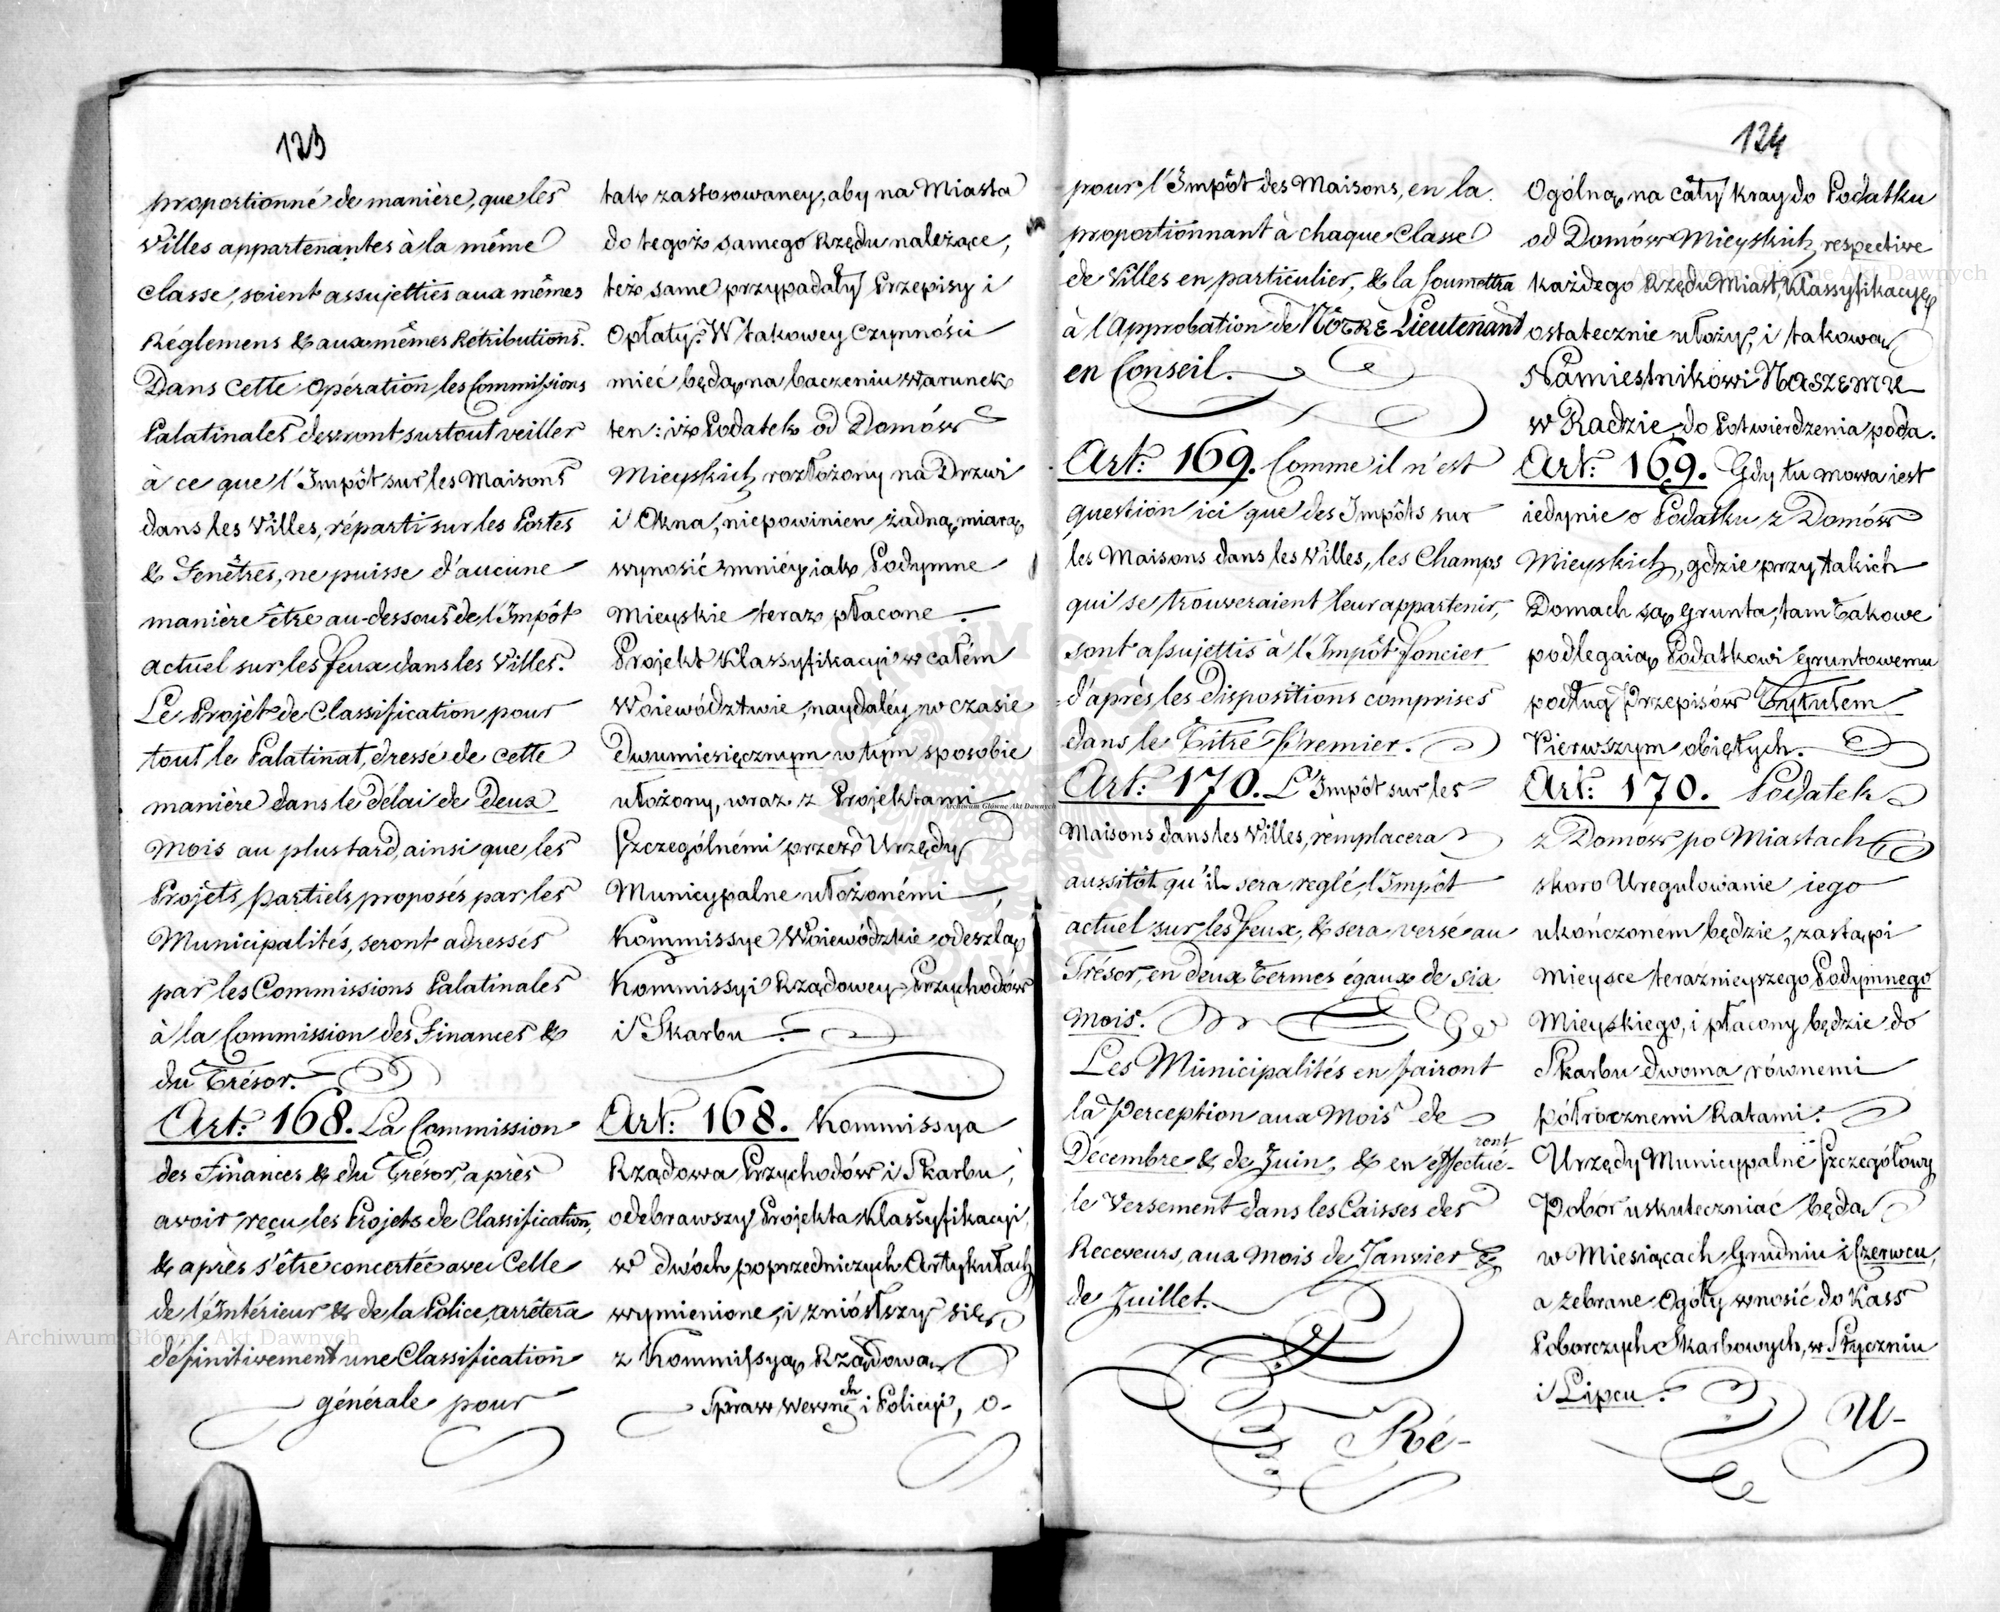 123
proportionné de manière, que les
Villes appartenantes à la même
Classe, soient assujetties aux mêmes
Réglemens & aux mêmes Rétributions.
Dans Cette Opération, les Commissions
Palatinales devront surtout veiller
à ce que l'Impôt sur les Maisons
dans les Villes, réparti sur les Portes
& Fenêtres, ne puisse d'aucune
manière être au-dessous de l'Impôt
actuel sur les feux dans les Villes.
Le Projèt de Classification pour
tout le Palatinat, dressé de cette
manière dans le délai de Deux
Mois au plus tard, ainsi que les
Projets partiels, proposés par les
Municipalités, seront adressés
par les Commissions Palatinales
à la Commission des Finances &
du Trésor.
Art: 168. La Commission
des Finances & du Trésor, après
avoir reçu les Projets de Classification,
& après s'être concertée avec Celle
de l'Intérieur & de la Police, arrêtera
définitivement une Classification
générale pour
tak zastosowaney, aby na Miasta
do tegoż samego Rzędu należące,
też same przypadały Przepisy i
Opłaty. W takowey Czynności
mieć będą na baczeniu Warunek
ten: iż Podatek od Domów
Mieyskich rozłożony na Drzwi
i Okna, niepowinien żadną miarą
wynosić mniéy iak Podymne
Mieyskie teraz płacone.
Projekt Klassyfikacyi w całém
Woiewództwie, naydaléy w czasie
Dwumiesięcznym w tym sposobie
ułożony, wraz z Projektami
Szczególnémi przez Urzędy
Municypalne ułożonémi,
Kommissye Woiewódzkie odeszlą
Kommissyi Rządowey Przychodów
i Skarbu.
Art: 168. Kommissya
Rządowa Przychodów i Skarbu,
odebrawszy Projekta Klassyfikacyi,
w dwóch poprzedniczych Artykułach
wymienione, i zniósłszy się
z Kommissyą Rządową
Spraw Wewnęch i Policyi, o-
124
pour l'Impôt des Maisons, en la
proportionnant à chaque Classe
de Villes en particulier, & la soumettra
à l'Approbation de NÔTRE Lieutenant
en Conseil.
Art: 169. Comme il n'est
question ici que des Impôts sur
les Maisons dans les Villes, les Champs
qui se trouveraient leur appartenir,
sont assujettis à l'Impôt foncier
d'après les dispositions comprises
dans le Titre Premier.
Art: 170. L'Impôt sur les
Maisons dans les Villes, remplacera
aussitôt qu'il sera reglé, l'Impôt
actuel sur les feux, & sera versé au
Trésor, en deux Termes égaux de six
mois.
Les Municipalités en fairont
la Perception aux Mois de
Décembre & de Juin, & en éffectué-ront
le Versement dans les Caisses des
Receveurs, aux Mois de Janvier &
de Juillet.
Ré-
Ogólną, na cały kray do Podatku
od Domów Mieyskich, respective
każdego Rzędu Miast, Klassyfikacyę
ostatecznie ułoży, i takową
Namiestnikowi NASZEMU
w Radzie do Potwierdzenia poda.
Art: 169. Gdy tu mowa iest
iedynie o Podatku z Domów
Mieyskich, gdzie przy takich
Domach są Grunta, tam takowe
podlegaią Podatkowi Gruntowemu
podług Przepisów Tytułem
Pierwszym obiętych.
Art: 170. Podatek
z Domów po Miastach
skoro Uregulowanie iego
ukończoném będzie, zastąpi
Mieysce teraźnieyszego Podymnego
Mieyskiego, i płacony będzie do
Skarbu dwoma równemi
półrocznemi Ratami.
Urzędy Municypalne Szczegółowy
Pobór uskuteczniać będą
w Miesiącach Grudniu i Czerwcu,
a zebrane Ogóły wnosić do Kass
Poborczych Skarbowych, w Styczniu
i Lipcu.
U-
Archiwum Główne Akt Dawnych
Archiwum Główne Akt Dawnych
Archiwum Główne Akt Dawnych